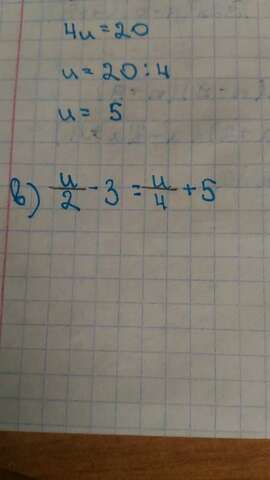 4u=20
u=20:4
u= 5
в) u/2-3=u/4+5